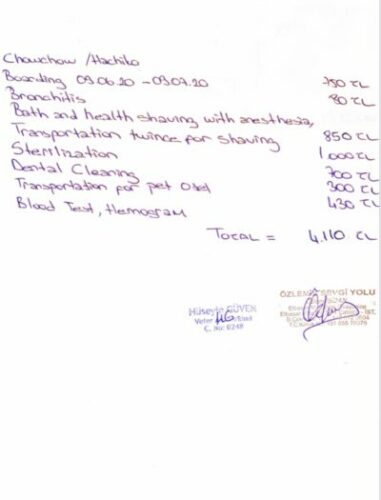 Chowchow /Hachiko
Boarding 09.06.20 - 09.07.20 750 TL
Bronchitis 80 TL
Bath and health shaving with anesthesia,
Transportation twince for shaving 850 TL
Sterilization 1.000 TL
Dental Cleaning 700 TL
Transportation for pet Otel 300 TL
Blood Test, Hemogram 430 TL
TOTAL = 4.110 TL
Hüseyin GÜVEN
Veter
C. No: 0248
ÖZLEM SEVGİ YOLU